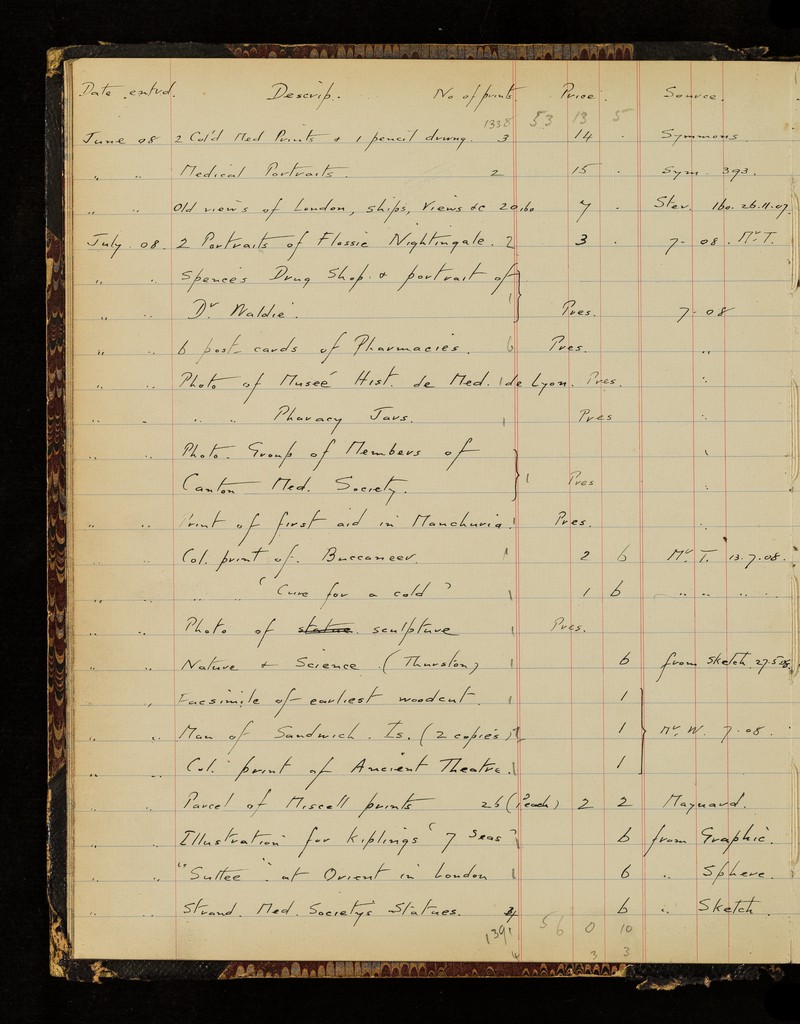 Date entrd. Descrip. No of prints. Price. Source.
1338 53 13 5
June 08 2 Col'd Med Prints & 1 pencil drwng. 3 14 . Symmons
" " Medical Portraits. 2 15 . Sym. 393.
" " Old views of London, ships, views &c 20 160 7 . Stev. 160. 26.11.07.
July 08. 2 Portraits of Flossie Nightingale. 2 3 . 7-08. Mr. T.
" " Spence's Drug Shop & portrait of
" " Dr Waldie. 1 Pres. 7-08
" " 6 post-cards of Pharmacies. 6 Pres. "
" " Photo of Museé Hist. de Med. 1 de Lyon. Pres. "
" " " " Pharacy Jars. 1 Pres "
" " Photo. Group of Members of "
Canton Med. Society. 1 Pres "
" " Print of first aid in Manchuria. 1 Pres. "
" " Col. print of. Buccaneer. 1 2 6 Mr. T. 13.7.08.
" " " " "Cure for a cold" 1 1 6 " " " "
" " Photo of statue. sculpture 1 Pres.
" " Nature & Science (Thurston) 1 6 from Sketch 27.5.08.
" Facsimile of earliest woodcut. 1 1
" " Man of Sandwich. Is. (2 copies) 1 Mr. W. 7-08.
" " Col. print of Ancient Theatre. 1 1
" " Parcel of Miscell prints 26 (1 each) 2 2 Maynard.
" " Illustration for Kiplings "7 Seas" 1 6 from Graphic.
" " "Suttee" at Orient in London 1 6 " Sphere.
" " Strand. Med. Society's Statues. 6 " Sketch.
1391 56 0 10
3 3